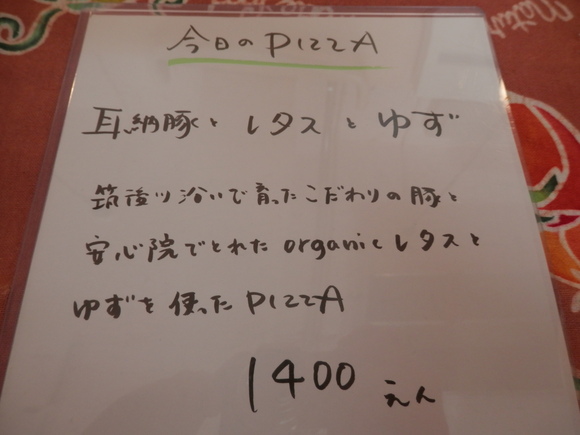 今日のPIZZA
耳納豚とレタスとゆず
筑後川沿いで育ったこだわりの豚と
安心院でとれたorganicレタスと
ゆずを使ったPIZZA
1400えん